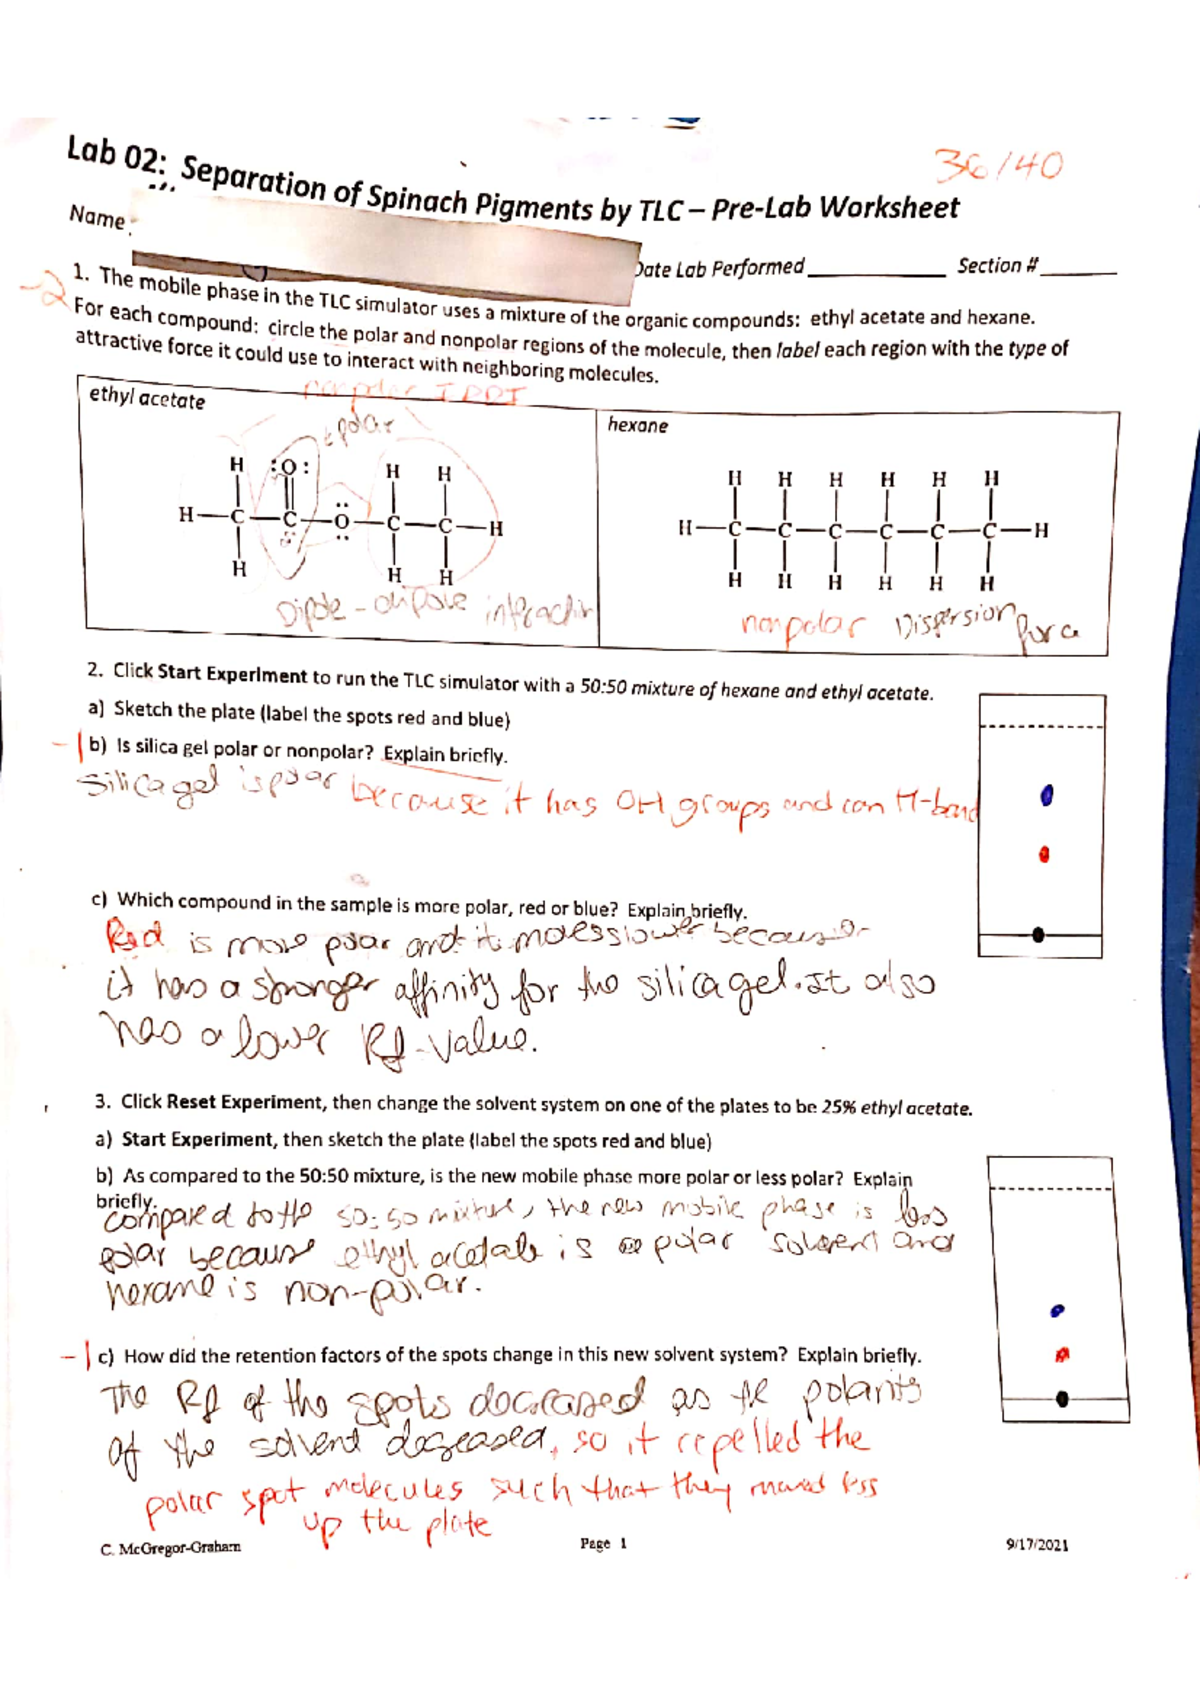 36/40
Lab 02: Separation of Spinach Pigments by TLC – Pre-Lab Worksheet
Name Date Lab Performed Section #
-2
1. The mobile phase in the TLC simulator uses a mixture of the organic compounds: ethyl acetate and hexane.
For each compound: circle the polar and nonpolar regions of the molecule, then label each region with the type of
attractive force it could use to interact with neighboring molecules.
nonpolar IDDI
ethyl acetate
polar
hexane
H :O: H H
H C C O C C H
H H H
Dipole-dipole interaction
H H H H H H
H C C C C C C H
H H H H H H
nonpolar Dispersion force
2. Click Start Experiment to run the TLC simulator with a 50:50 mixture of hexane and ethyl acetate.
a) Sketch the plate (label the spots red and blue)
-1 b) Is silica gel polar or nonpolar? Explain briefly.
Silica gel is polar because it has OH groups and can H-bond
c) Which compound in the sample is more polar, red or blue? Explain briefly.
Red is more polar and it moves slower because
it has a stronger affinity for the silica gel. It also
has a lower Rf-value.
3. Click Reset Experiment, then change the solvent system on one of the plates to be 25% ethyl acetate.
a) Start Experiment, then sketch the plate (label the spots red and blue)
b) As compared to the 50:50 mixture, is the new mobile phase more polar or less polar? Explain
briefly.
compared to the 50:50 mixture, the new mobile phase is less
polar because ethyl acetate is polar solvent and
hexane is non-polar.
-1 c) How did the retention factors of the spots change in this new solvent system? Explain briefly.
The Rf of the spots decreased as the polarity
of the solvent degeased, so it repelled the
polar spot molecules such that they moved less
up the plate
C. McGregor-Graham Page 1 9/17/2021